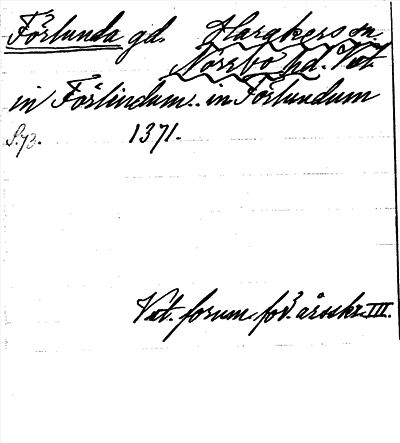 Förlunda gd. Hargkers sn
Norrbo hd. Vst.
in Förlindum. in Förlundum
S. 73. 1371.
Vst. fornm. för. årsskr. III.